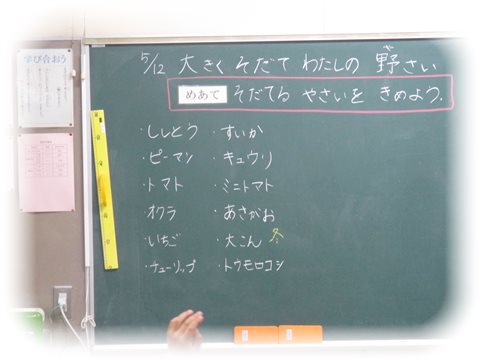 学び合おう
5/12 大きく そだて わたしの 野さい
めあて そだてる やさいを きめよう.
・ししとう ・すいか
・ピーマン ・キュウリ
・トマト ・ミニトマト
・オクラ ・あさがお
・いちご ・大こん 冬
・チューリップ ・トウモロコシ